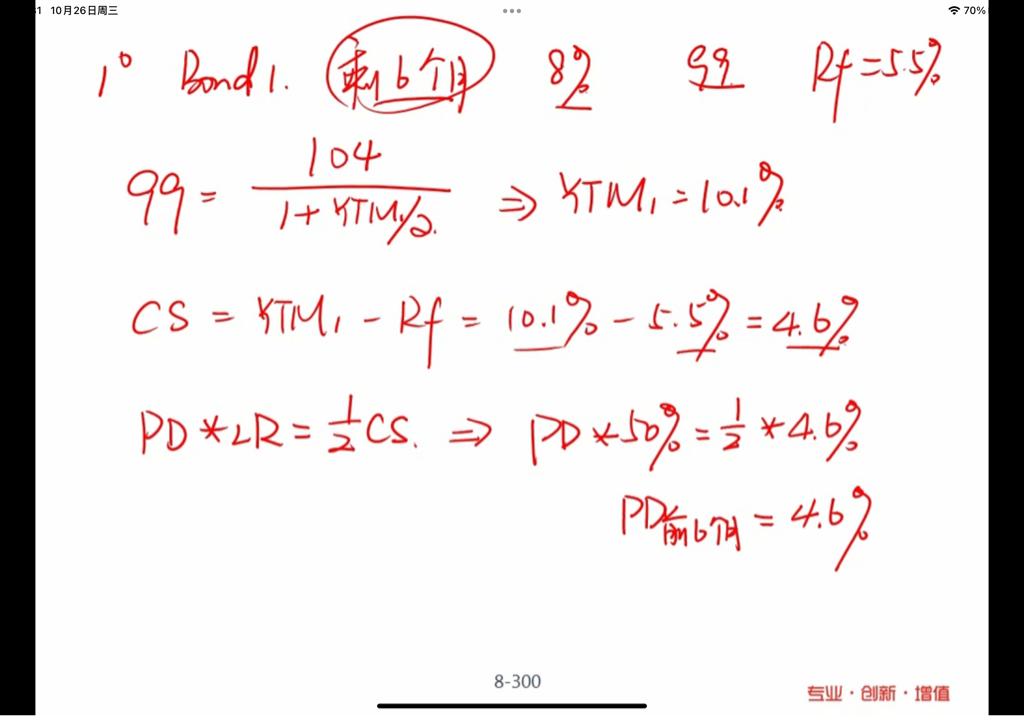 31 10月26日周三 70%
1° Bond 1. 剩6个月 8% 99 Rf=5.5%
99 = 104 / 1+YTM₁/2. ⇒ YTM₁ = 10.1%
CS = YTM₁ - Rf = 10.1% - 5.5% = 4.6%
PD * LR = 1/2 CS. ⇒ PD * 50% = 1/2 * 4.6%
PD前6个月 = 4.6%
8-300
专业·创新·增值